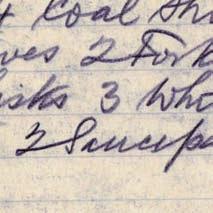 4 Coal Sh
ves 2 Fork
isks 3 Whi
2 Saucep